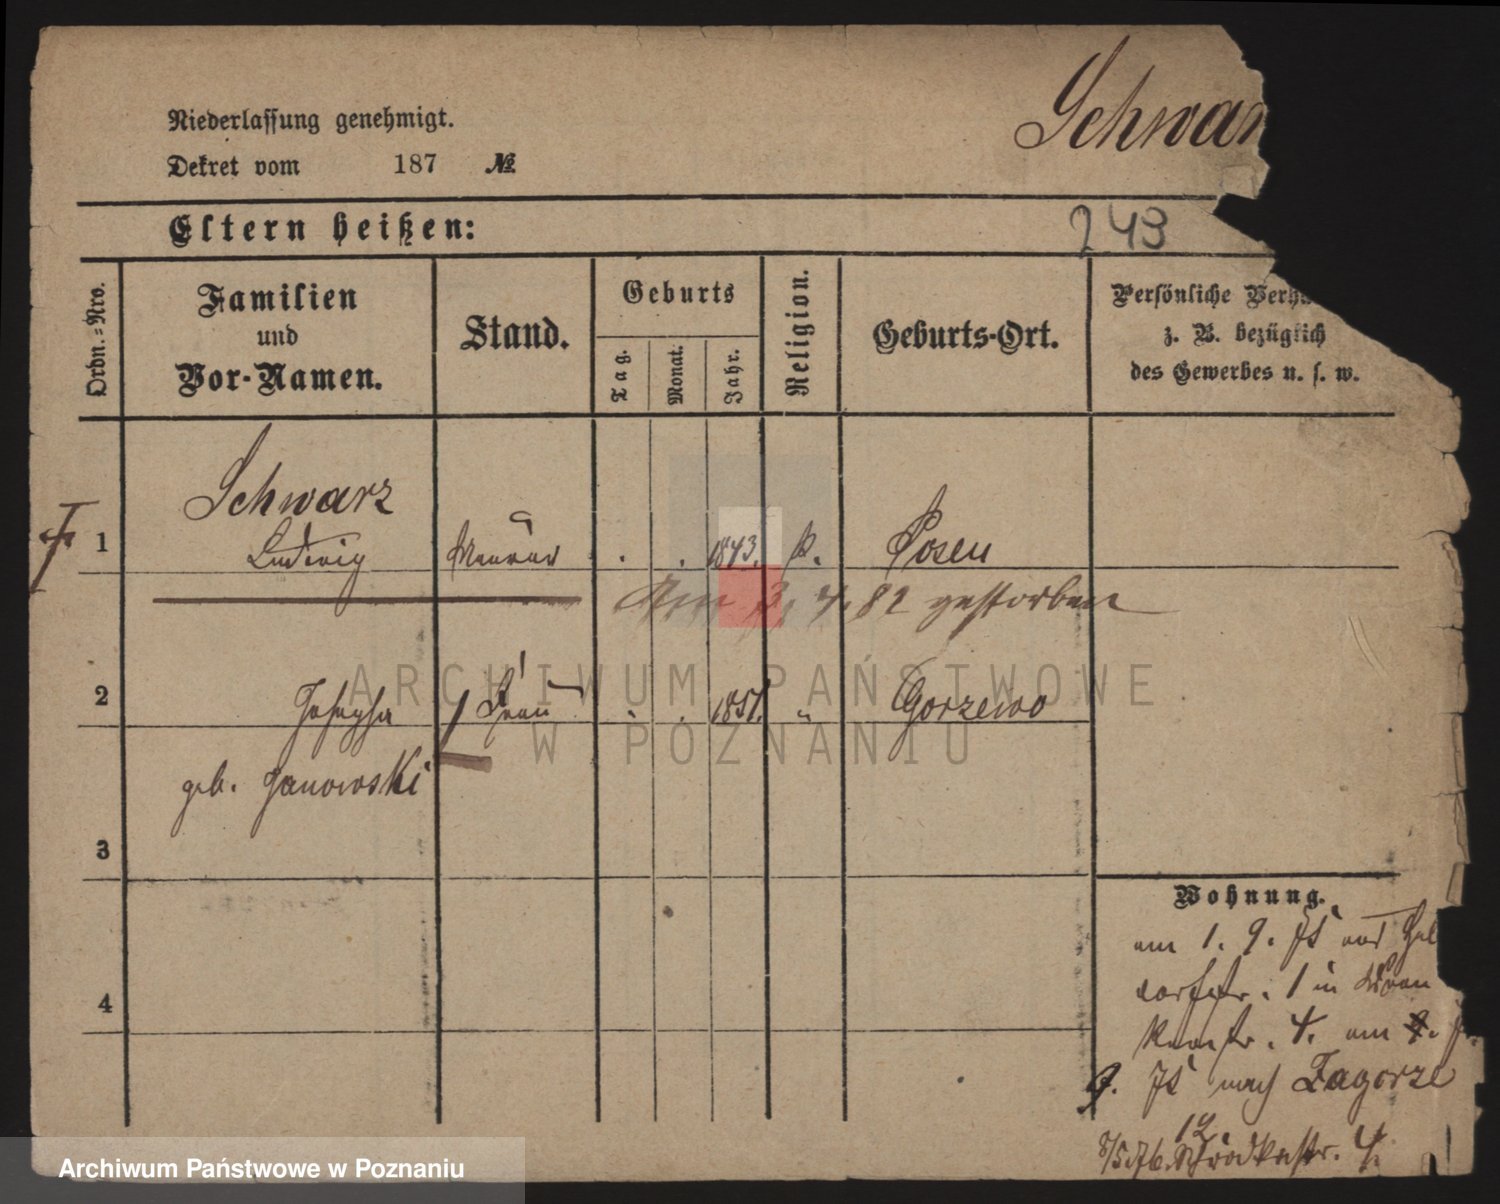 Schwar
Niederlassung genehmigt.
Dekret vom 187 №
Eltern heißen:
243
Ordn.=Nro.
Familien
und
Vor-Namen.
Stand.
Geburts
Tag.
Monat.
Jahr.
Religion.
Geburts-Ort.
Persönliche Verh
z. B. bezüglich
des Gewerbes u. s. w.
Schwarz
1 Ludwig Maurer . . 1843. k. Posen
Am 3. 4. 82 gestorben
2 Josepha Frau . . 1851. " Gorzewo
geb. Janowski
3
4
Wohnung.
am 1. 9. 75 aus
dorfstr. 1 in
str. 4. am
9. 75 nach Zagorze
12
8/5.76. Schrodkastr. 4.
ARCHIWUM PAŃSTWOWE
W POZNANIU
Archiwum Państwowe w Poznaniu